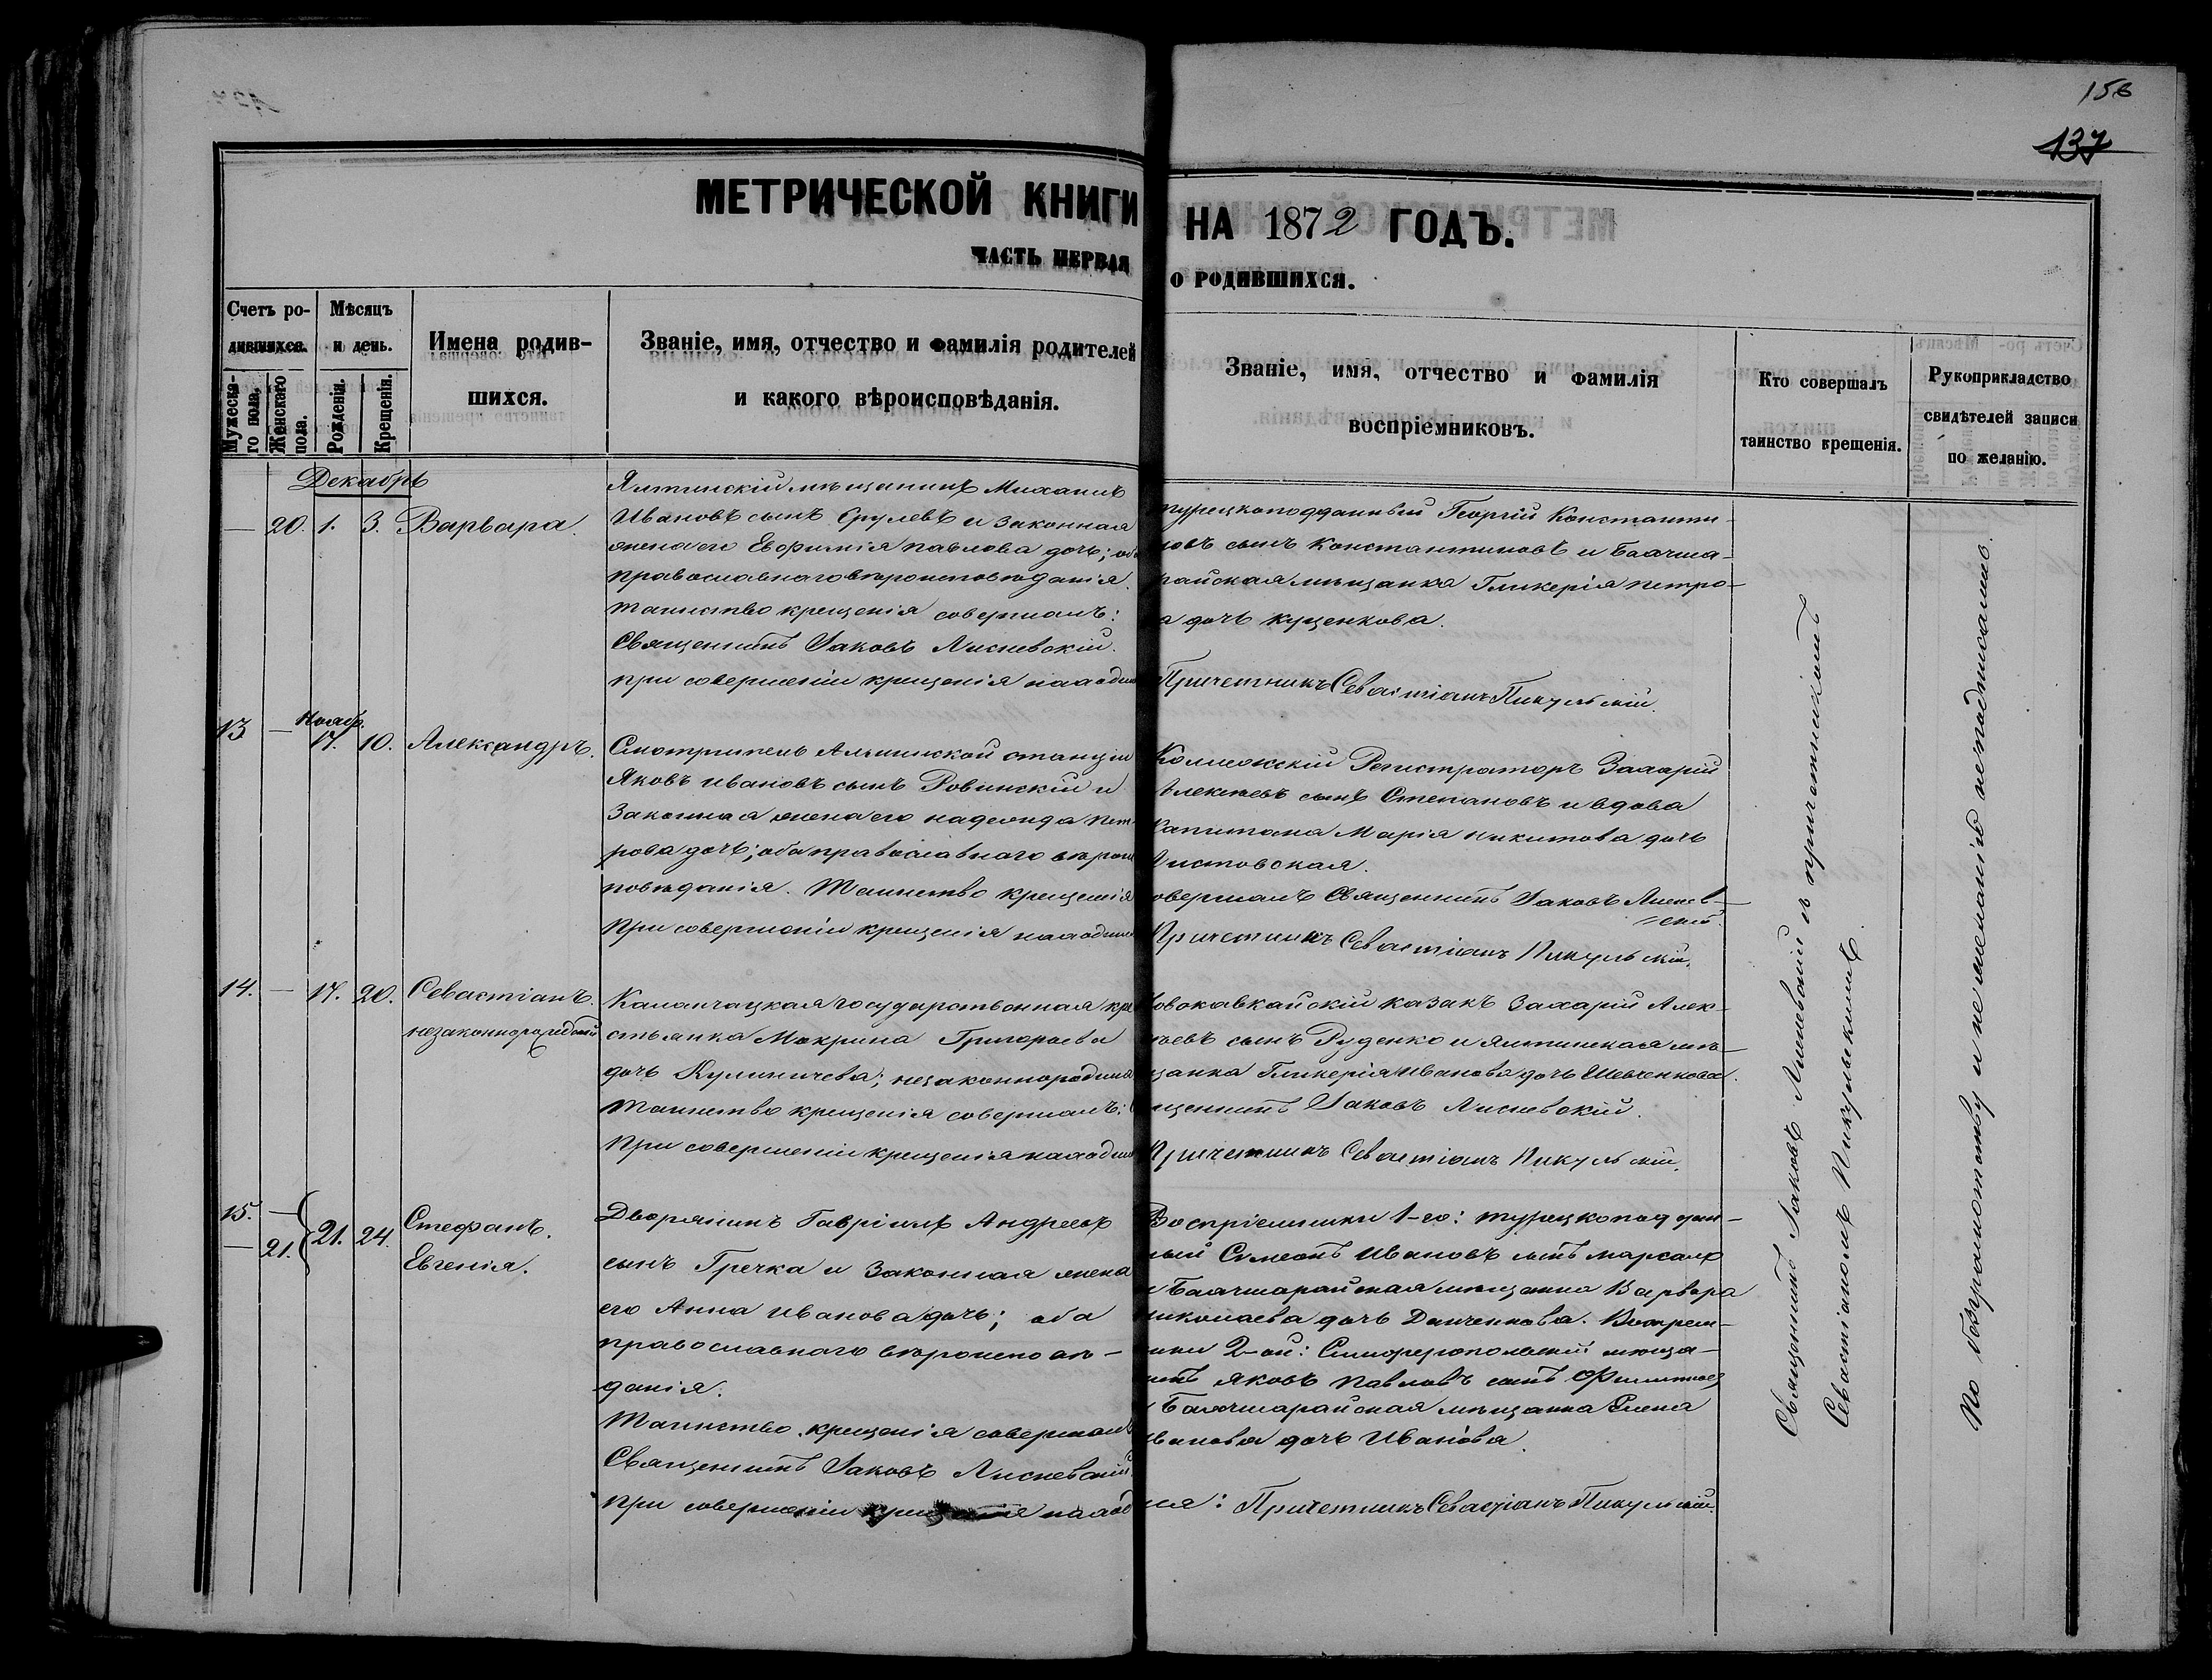 156
137
МЕТРИЧЕСКОЙ КНИГИ НА 1872 ГОДЪ.
ЧАСТЬ ПЕРВАЯ О РОДИВШИХСЯ.
Счетъ ро-
дившихся.
Мужеска-
го пола.
Женскаго
пола.
Мѣсяцъ
и день.
Рожденія.
Крещенія.
Имена родив-
шихся.
Званіе, имя, отчество и фамилія родителей
и какого вѣроисповѣданія.
Званіе, имя, отчество и фамилія
воспріемниковъ.
Кто совершалъ
таинство крещенія.
Рукоприкладство
свидѣтелей записи
по желанію.
Декабрь
— 20. 1. 3. Варвара.
Ялтинскій мѣщанинъ Михаилъ
Ивановъ сынъ и законная
жена его Евфимія Павлова дочь; оба
православнаго вѣроисповѣданія.
Таинство крещенія совершалъ:
Священникъ Іаковъ Лисневскій.
при совершеніи крещенія находил
турецкоподданный Георгій Константи-
новъ сынъ Константиновъ и Бахчиса-
райская мѣщанка Гликерія Петро-
ва дочь Куценкова.
Причетникъ Севастіанъ Пикульскій.
13 — Ноябр. 17. 10. Александръ.
Смотритель Альминской станціи
Яковъ Ивановъ сынъ Ровинскій и
Законная жена его Надежда Пет-
рова дочь; оба православнаго вѣроис
повѣданія. Таинство крещенія
При совершеніи крещенія находил
Коллежскій Регистраторъ Захарій
Алексѣевъ сынъ Степановъ и вдова
Капитана Марія Никитова дочь
Листовская.
совершалъ Священникъ Іаковъ Лиснев-
скій.
Причетникъ Севастіанъ Пикульскій.
14. — 17. 20. Севастіанъ.
незаконнорожденный
Каланчацкая государственная кре
стьянка Макрина Григорьева
дочь Куличева; незаконнородила
Таинство крещенія совершалъ:
При совершеніи крещенія находил
казакъ Захарій Алек-
сѣевъ сынъ Руденко и Ялтинская мѣ-
щанка Гликерія Иванова дочь Шевченкова.
щенникъ Іаковъ Лисневскій.
Причетникъ Севастіанъ Пикульскій.
15. —
— 21. 21. 24.
Стефанъ.
Евгенія.
Дворянинъ Гавріилъ Андреевъ
сынъ Гречка и Законная жена
его Анна Иванова дочь; оба
православнаго вѣроисповѣ-
данія.
Таинство крещенія совершалъ
Священникъ Іаковъ Лисневскій.
при совершеніи крещенія наход
Воспріемники 1-го: турецкоподдан-
ный Симеонъ Ивановъ сынъ
и Бахчисарайская мѣщанка Варвара
Николаева дочь Данченкова. Воспріем-
ники 2-ой: Симферопольскій мѣща-
нинъ Яковъ Павловъ сынъ
и Бахчисарайская мѣщанка Елена
Иванова дочь Иванова.
ися: Причетникъ Севастіанъ Пикульскій.
Священникъ Іаковъ Лисневскій и причетникомъ
Севастіаномъ Пикульскимъ.
По безграмотству и не желанію неподписались.